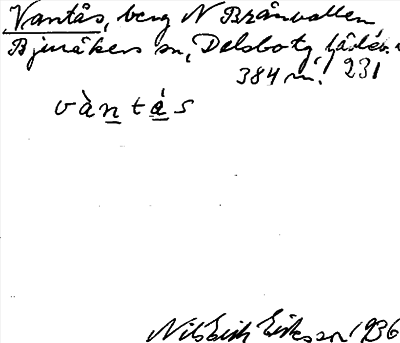 Vantås, berg N Brånvallen
Bjuråkers sn, Delsbo tg,
384 m. 231
vàntås
Nils Erik Eriksson 1936